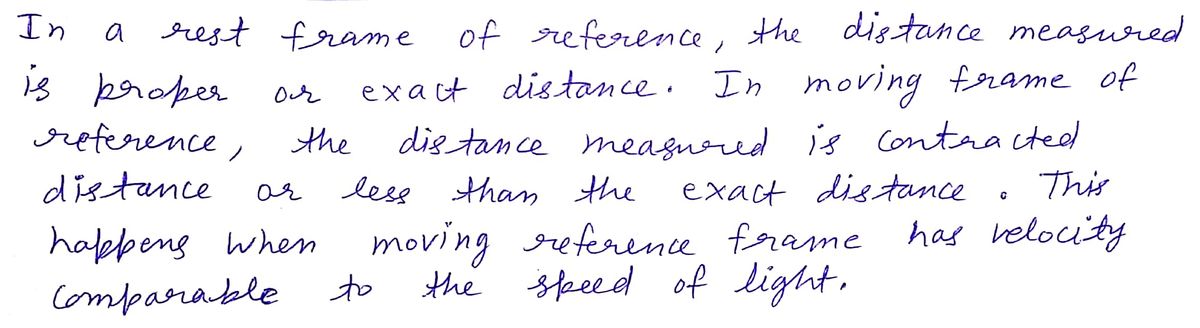 In a rest frame of reference, the distance measured
is proper or exact distance. In moving frame of
reference, the distance measured is contracted
distance or less than the exact distance. This
happens when moving reference frame has velocity
comparable to the speed of light.